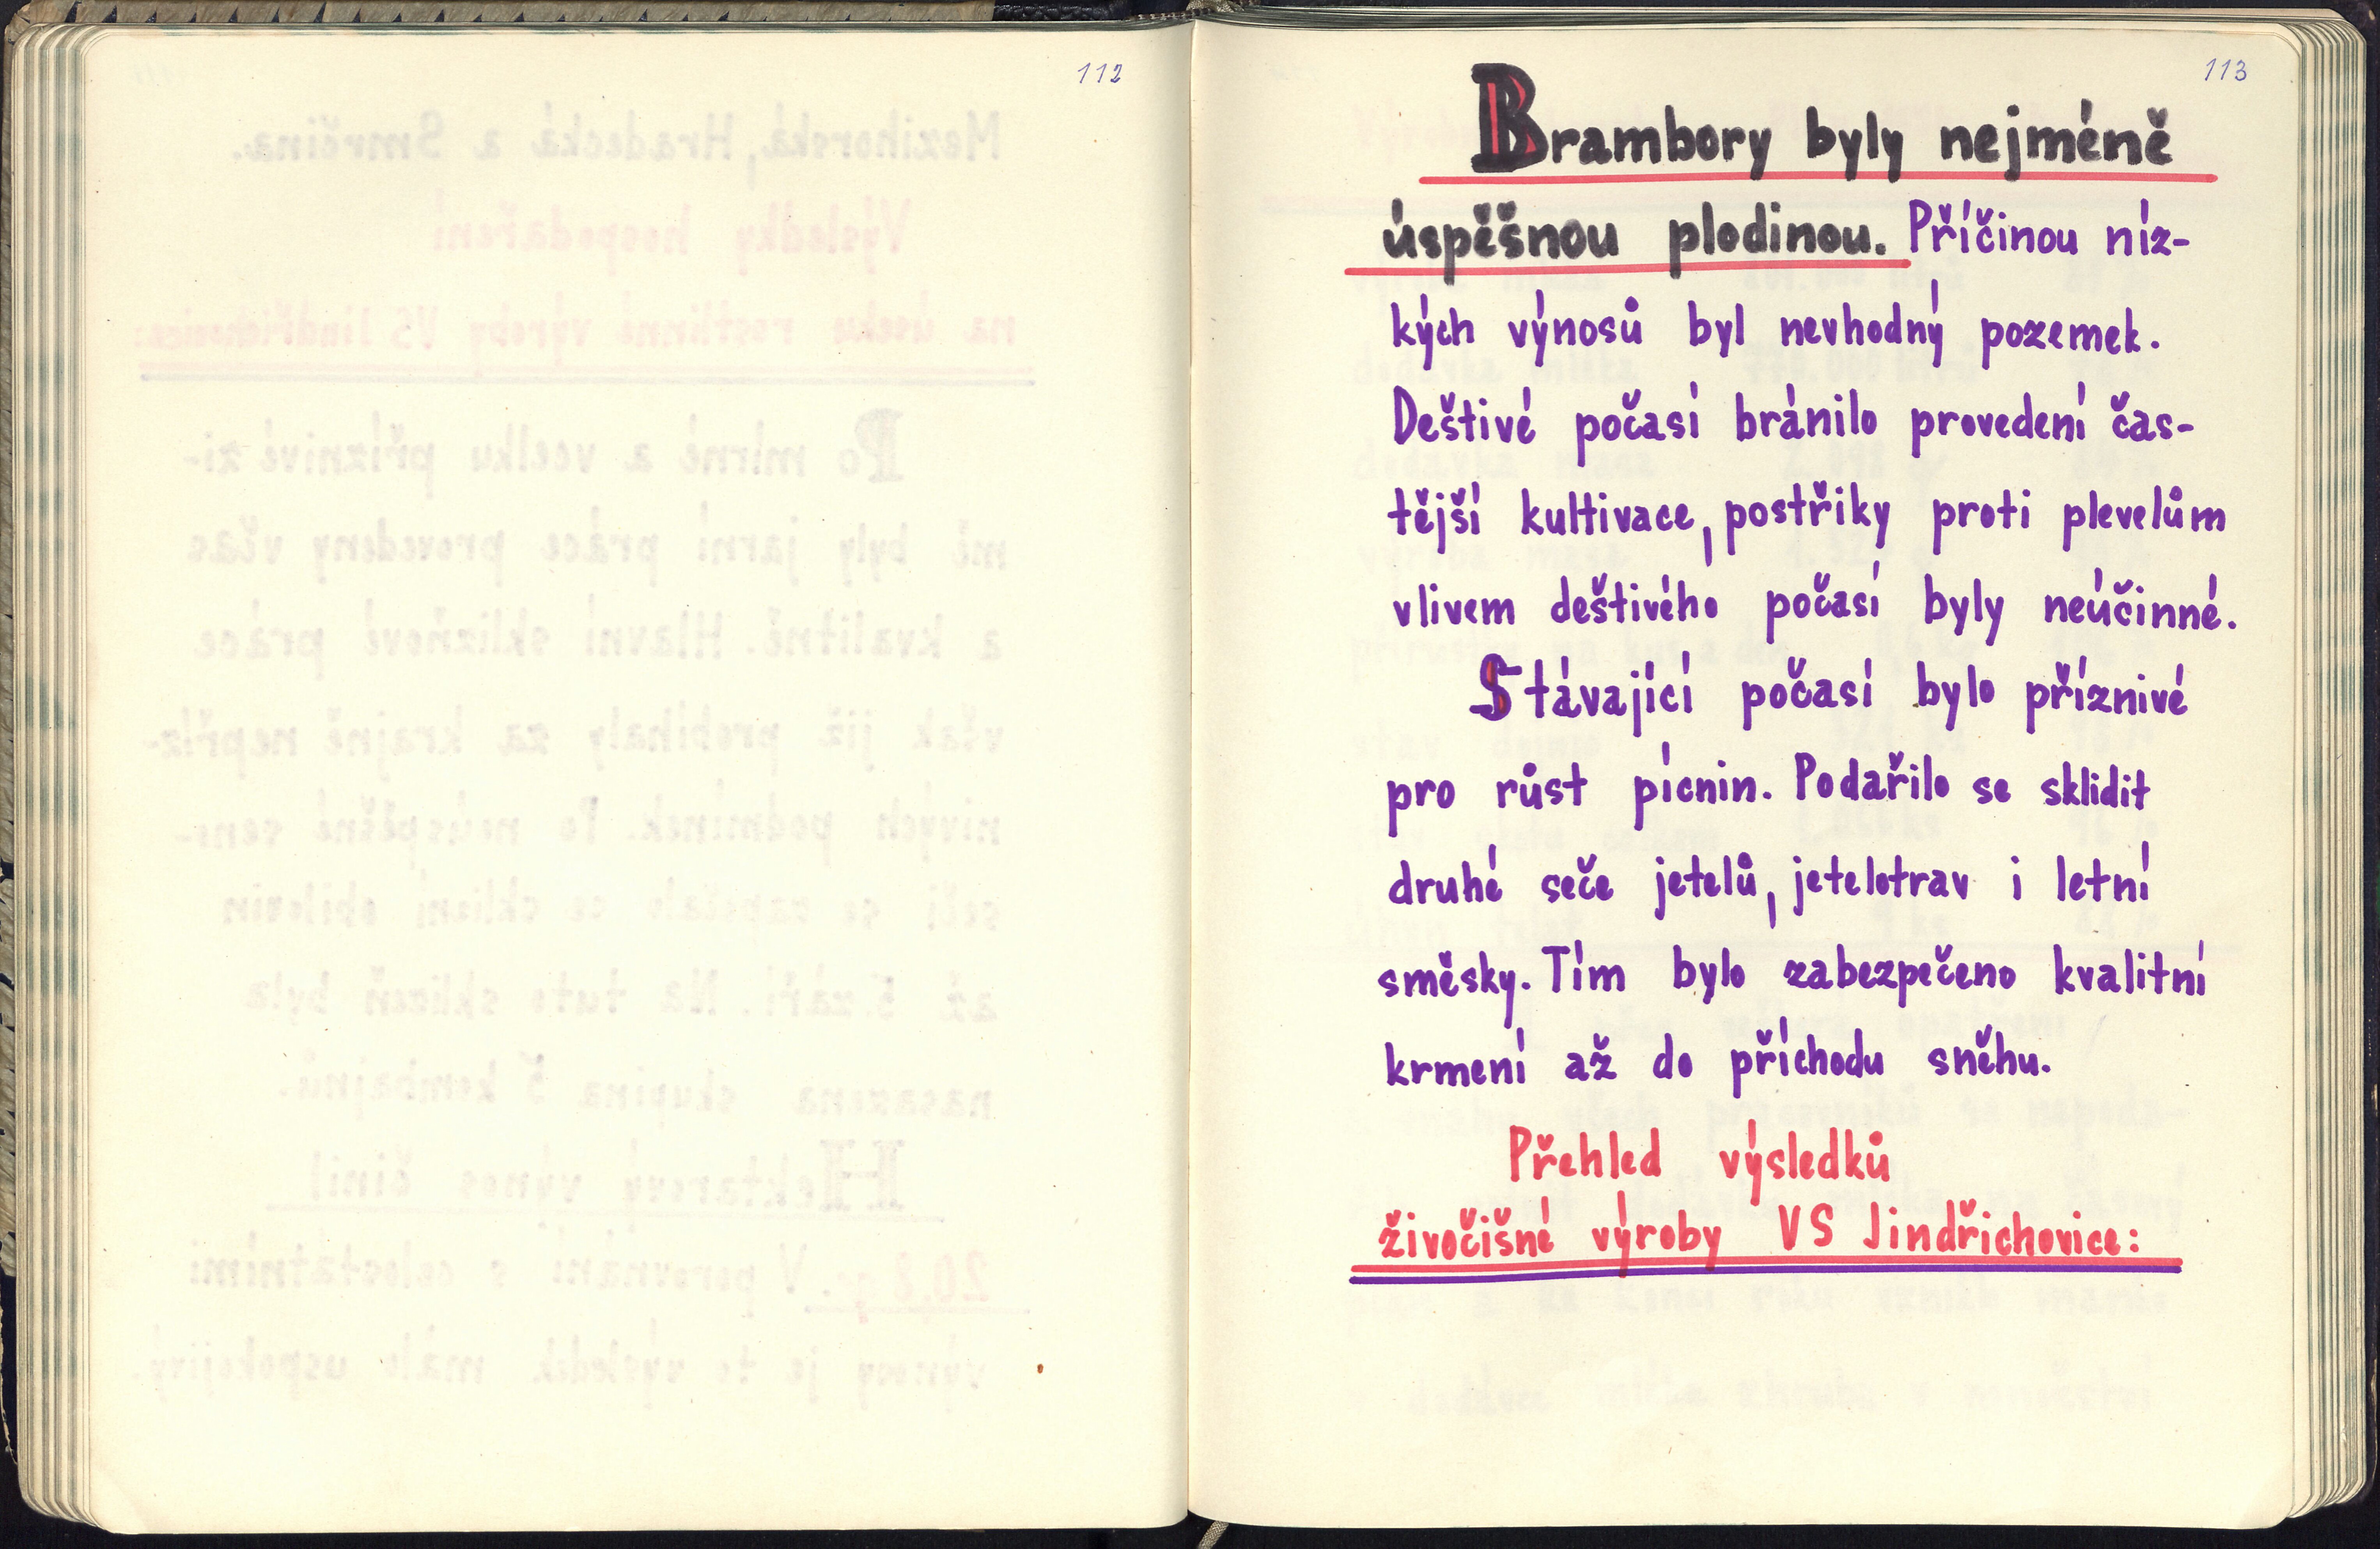 112
113
Brambory byly nejméně
úspěšnou plodinou. Příčinou níz-
kých výnosů byl nevhodný pozemek.
Deštivé počasí bránilo provedení čas-
tější kultivace, postřiky proti plevelům
vlivem deštivého počasí byly neúčinné.
Stávající počasí bylo příznivé
pro růst pícnin. Podařilo se sklidit
druhé seče jetelů, jetelotrav i letní
směsky. Tím bylo zabezpečeno kvalitní
krmení až do příchodu sněhu.
Přehled výsledků
živočišné výroby VS Jindřichovice: